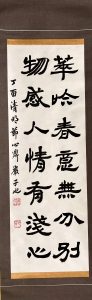 華吟春意無分別
物感人情有淺心
丁酉清明節